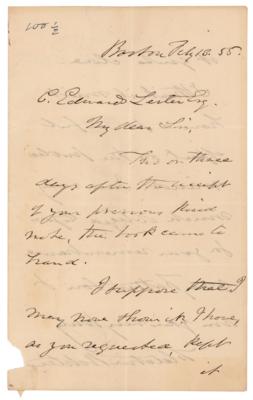 100 1/2
Boston Feby 18. 55.
C. Edward Lester Esq.
My dear Sir,
Two or three
days after the receipt
of your previous kind
note, the book came to
hand.
I suppose that I
may now show it. I have,
as you requested, kept
it